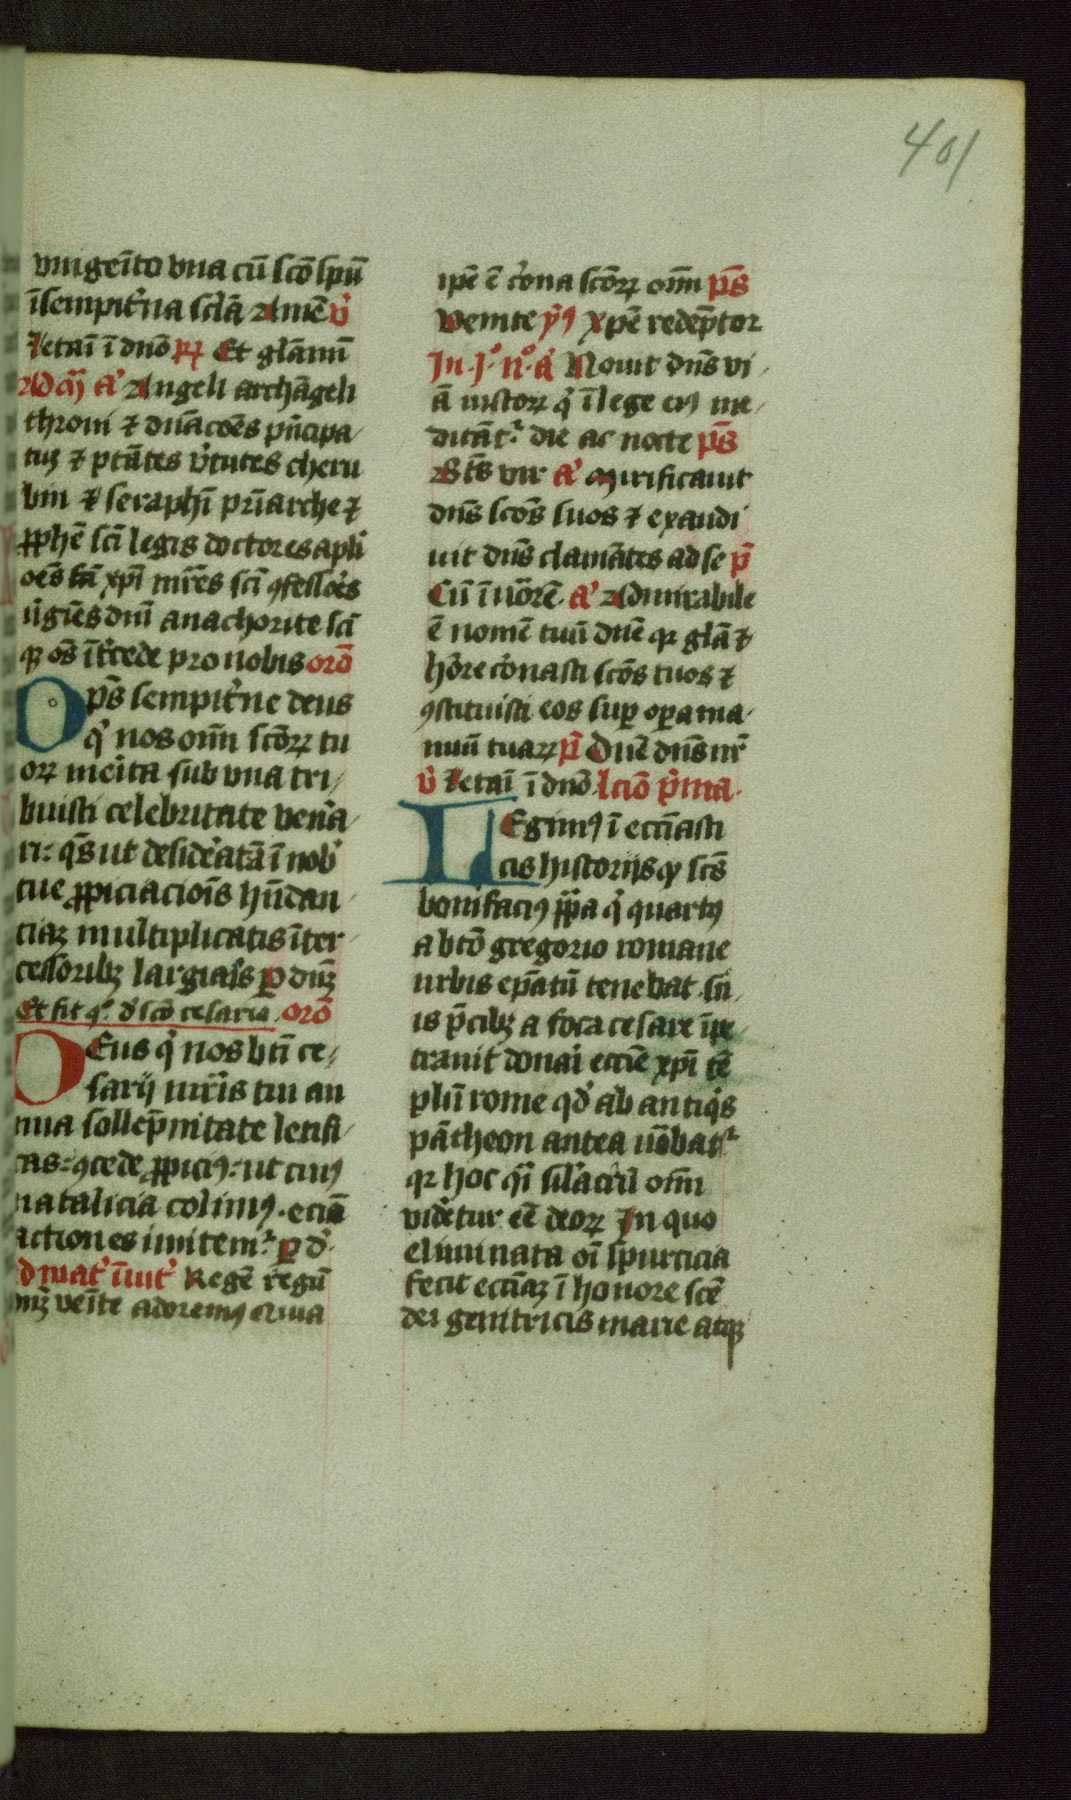 401
vnigeīto vna cū scō spū
ī sempit᷑na sc̄lā Amē v᷑
Letaī ī dnō p̄ꝝ Et gl̄amū
Ad cāȷ̄ a᷑ Angeli archāgeli
throni ⁊ dn̄acōes pn̄cipa
tꝫ ⁊ ptātes v᷑tutes cheru
bin ⁊ seraphī pr̄iarche ⁊
ꝓphē scī legis doctores apl̄i
oēs xp̄i mr̄es scī ꝯfessor᷑s
v᷑gīes dn̄i anachorite scī
qꝫ oēs īt᷑cede pro nobis orō
Op̄s sempit᷑ne deus
q᷑ nos om̄i scōꝝ tu
oꝝ me᷑ita sub vna tri
buisti celebritate ven᷑a
ri: qs̄ ut deside᷑atā ī nob᷑
tue ꝓpiciacioīs hn̄dan
ciaꝫ multiplicatis īter
cessoribꝫ largia᷑s ꝑ dn̄ꝫ
Et fit qͦ. d᷑ scō cesario orō
Deus q᷑ nos bt̄i ce
sarij mr̄is tui an
nua sollēpnitate letifi
cas: ꝯcede ꝓpiciꝰ: ut cuiꝰ
natalicia colimꝰ. eciā
actiones imitem᷑ ꝑ d᷑
d mat᷑ īuit᷑ Regē regū
nꝫ veīte adoremꝰ q᷑uia
ip̄e ē c᷑ona scōꝝ om̄i p̄s
Venite ẏꝰ xp̄e redēptor
In .j͛. n͛. a᷑ Nouit dn̄s vi
ā iustoꝝ q᷑ ī lege eiꝰ me
ditāt᷑ die ac nocte p̄s
Bt̄s vir a᷑ Mirificauit
dn̄s scōs suos ⁊ exaudi
uit dn̄s clamātes ad se p̄
Cū īuōrē a᷑ Admirabile
ē nomē tuū dn̄e qꝛ gl̄ā ⁊
hōre c᷑onasti scōs tuos ⁊
ꝯstituisti eos suꝑ oꝑa ma
nuū tuaꝝ p̄ Dn̄e dn̄s nr̄
v᷑ Letaī ī dnō lciō p᷑ma
Legimꝰ ī eccl̄iasti
cis historijs qꝫ scūs
bonifaciꝰ pp̄a q᷑ quartꝰ
a btō gregorio romane
urbis ep̄atū tenebat su
is p᷑cibꝫ a foca cesare īpe
trauit dona᷑i eccl̄ie xp̄i tē
plū rome qd᷑ ab antiq᷑s
pātheon antea uōbat᷑
qꝛ hoc q̄i sil᷑acr̄ū om̄i
vide᷑tur ēē deoꝝ In quo
eliminata oī spurcicia
fecit eccl̄iaꝫ ī honore scē
dei genitricis marie atqꝫ